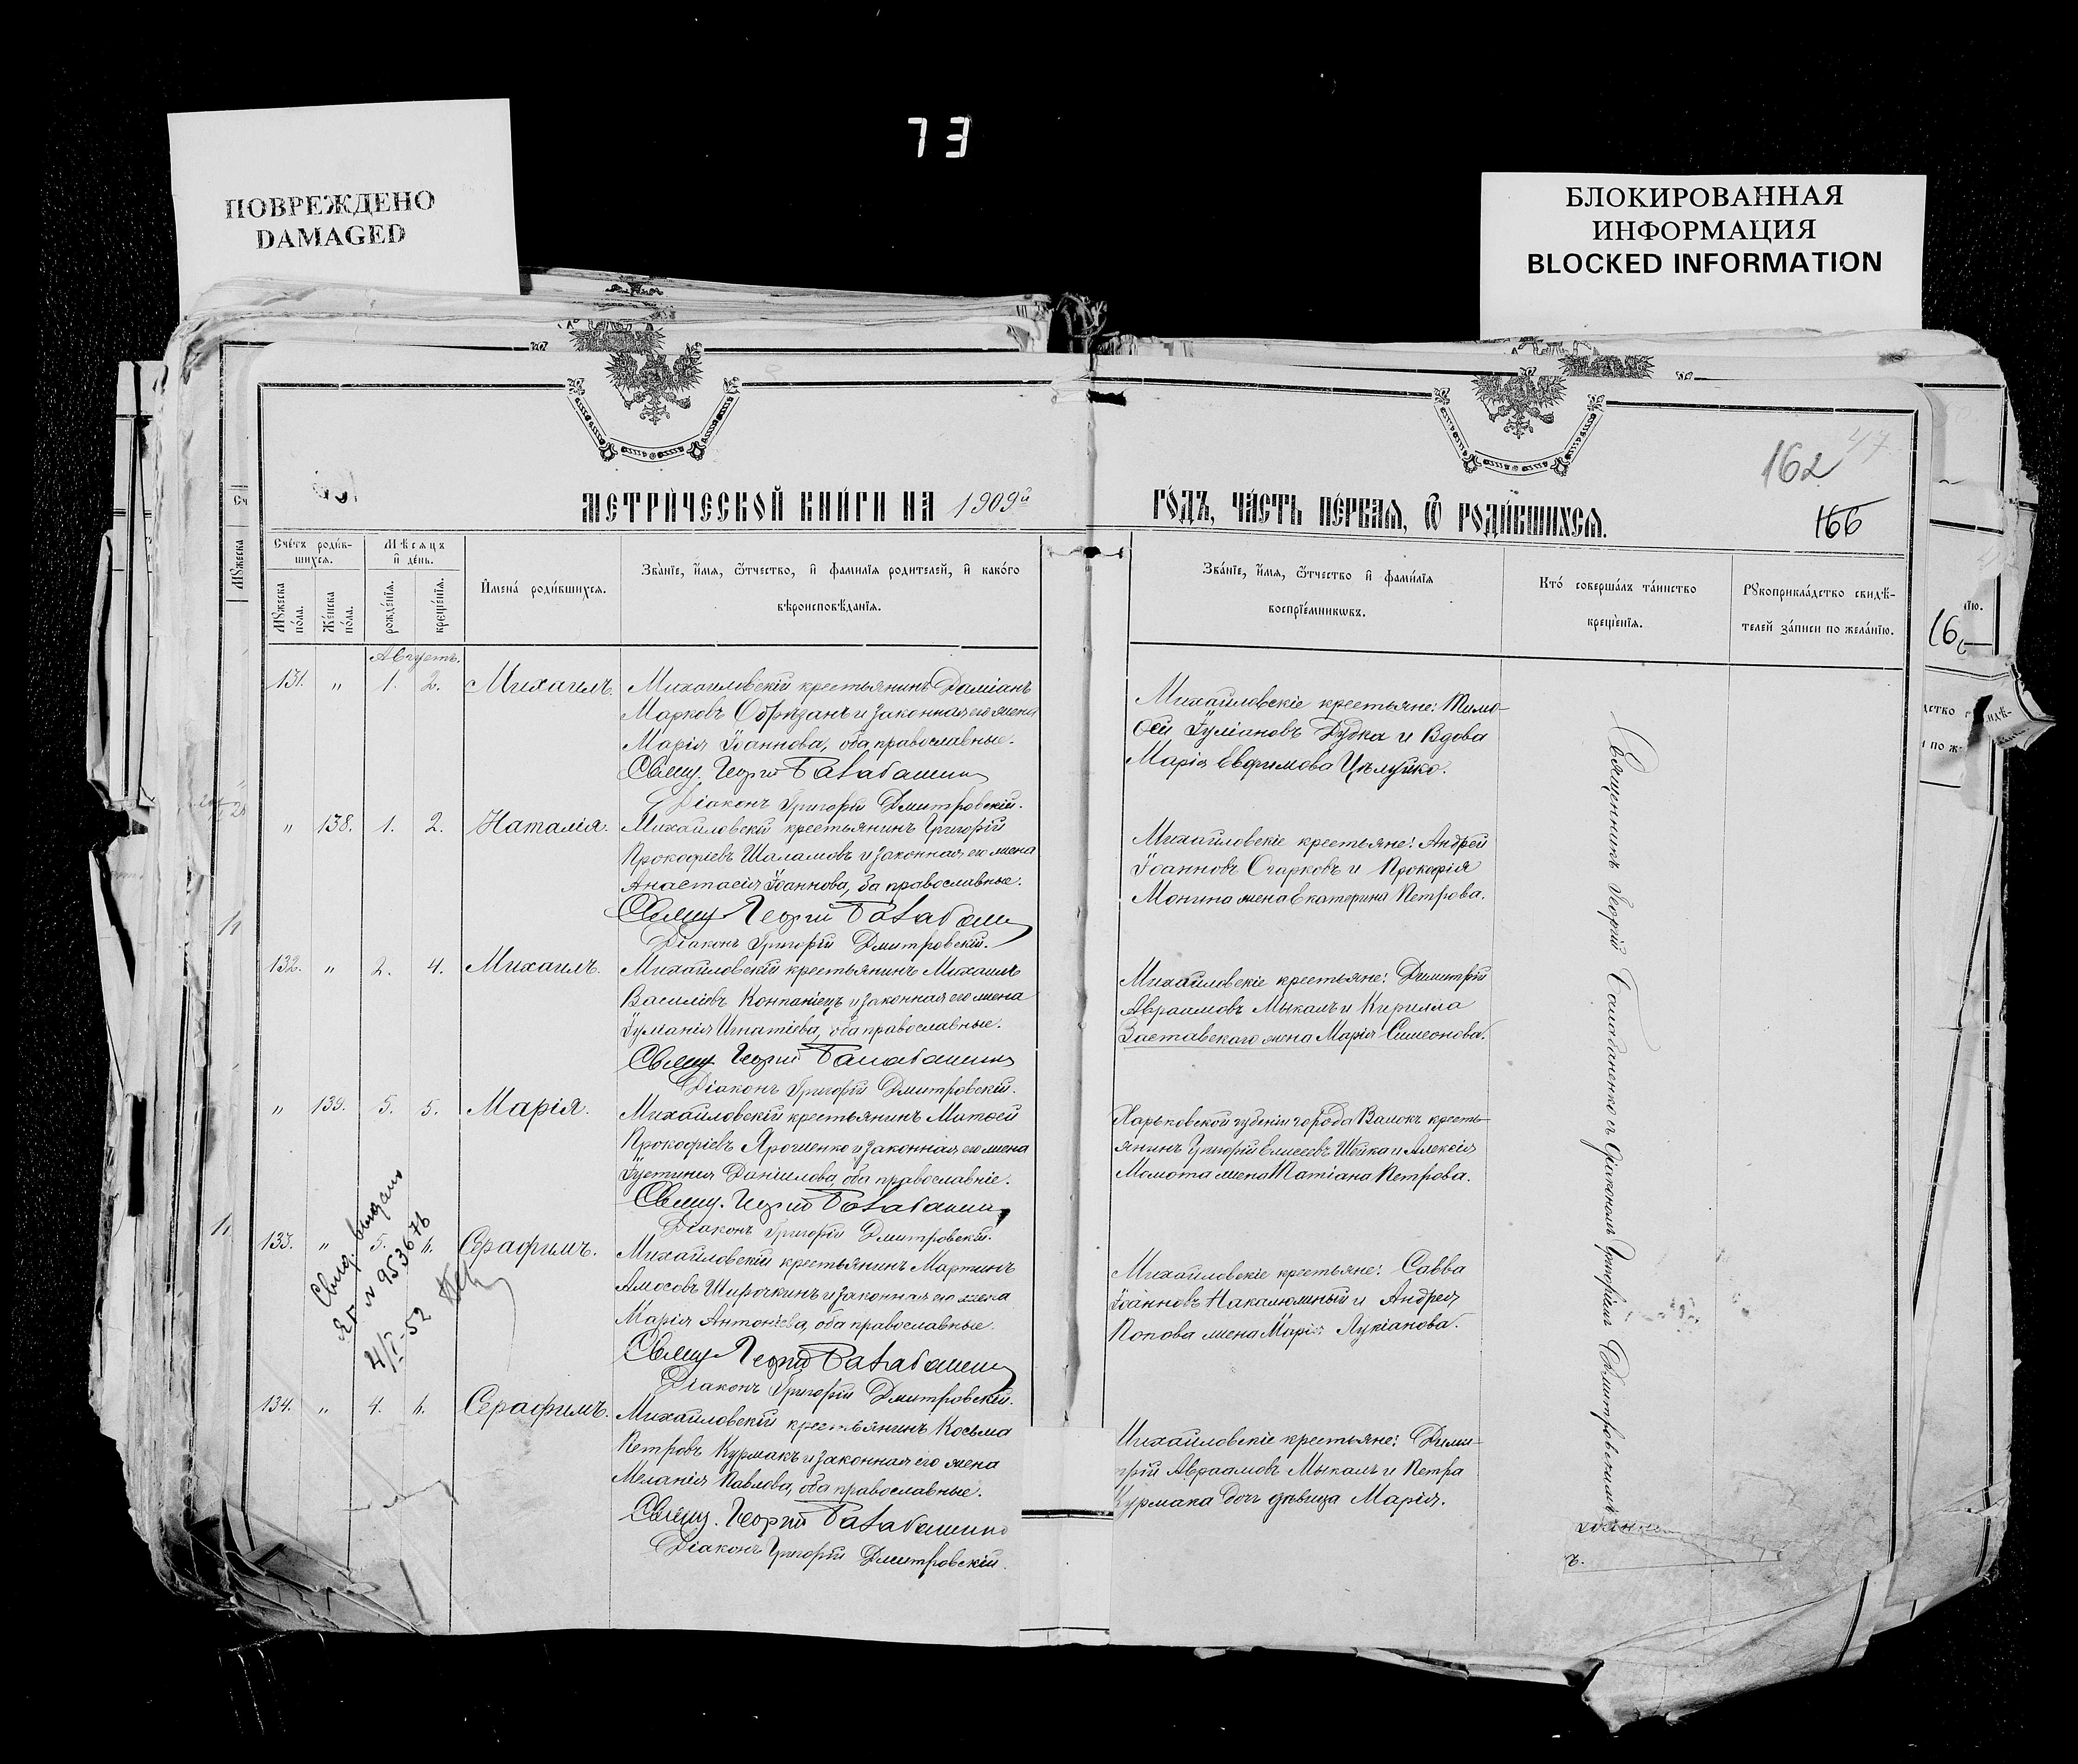 73
ПОВРЕЖДЕНО
DAMAGED
БЛОКИРОВАННАЯ
ИНФОРМАЦИЯ
BLOCKED INFORMATION
162
47
166
МЕТРИ́ЧЕСКОЙ КНИ́ГИ НА 1909й
ГО́ДЪ, ЧА́СТЬ ПЕ́РВАЯ, Ѿ РОДИ́ВШИХСЯ.
Сче́тъ роди́в-
шихся.
Мѣсяцъ
и҆ де́нь.
Мꙋжеска
по́ла.
Же́нска
по́ла.
рожде́нїя.
креще́нїя.
И҆мена̀ роди́вшихся.
Зва́нїе, и҆́мя, ѻ҆́тчество, и҆ фами́лїя роди́телей, и҆ како́го
вѣроисповѣ́данїя.
Зва́нїе, и҆́мя, ѻ҆́тчество и҆ фами́лїя
воспрїе́мникѡвъ.
Кто̀ соверша́лъ та́инство
креще́нїя.
Рꙋкоприкла́дство свидѣ́-
телей за́писи по жела́нїю.
Августъ.
131. " 1. 2. Михаилъ.
Михайловскій крестьянинъ Даміанъ
Марковъ Обрѣзанъ и законная его жена
Марія Іоаннова, оба православные.
Свящ. Георгій Балабаненко
Діаконъ Григорій Дмитровскій.
Михайловскіе крестьяне: Тимо-
ѳей Іуліановъ Дудка и Вдова
Марія Евфимова Цѣлуйко.
" 138. 1. 2. Наталія.
Михайловскій крестьянинъ Григорій
Прокофіевъ Шаламовъ и законная его жена
Анастасія Іоаннова, оба православные.
Свящ. Георгій Балабаненко
Діаконъ Григорій Дмитровскій.
Михайловскіе крестьяне: Андрей
Іоанновъ Огарковъ и Прокофія
Монина жена Екатерина Петрова.
132. " 2. 4. Михаилъ.
Михайловскій крестьянинъ Михаилъ
Василіевъ Компаніецъ и законная его жена
Іуліанія Игнатіева, оба православные.
Свящ. Георгій Балабаненко
Діаконъ Григорій Дмитровскій.
Михайловскіе крестьяне: Димитрій
Авраамовъ Мыкалъ и Кирилла
Заставскаго жена Марія Симеонова.
" 139. 5. 5. Марія.
Михайловскій крестьянинъ Матѳей
Прокофіевъ Ярошенко и законная его жена
Іустинія Даніилова, оба православніе.
Свящ. Георгій Балабаненко
Діаконъ Григорій Дмитровскій.
Харьковской губерніи города Валокъ кресть-
янинъ Григорій Елисеевъ Шейка и Алексія
Момота жена Татіана Петрова.
133. " 5. 6. Серафимъ.
Михайловскій крестьянинъ Мартинъ
Амосовъ Широчкинъ и законная его жена
Марія Антоніева, оба православные.
Свящ. Георгій Балабаненко
Діаконъ Григорій Дмитровскій.
Михайловскіе крестьяне: Савва
Іоанновъ Накалюжный и Андрея
Попова жена Марія Лукіанова.
Свид. выдано
Ег № 953676
4/I-52
134. " 4. 6. Серафимъ.
Михайловскій крестьянинъ Косьма
Петровъ Курмакъ и законная его жена
Меланія Павлова, оба православные.
Свящ. Георгій Балабаненко
Діаконъ Григорій Дмитровскій.
Михайловскіе крестьяне: Дими-
трій Авраамовъ Мыкалъ и Петра
Курмака дочь дѣвица Марія.
Священникъ Георгій Балабаненко съ діакономъ Григоріемъ Дмитровскимъ